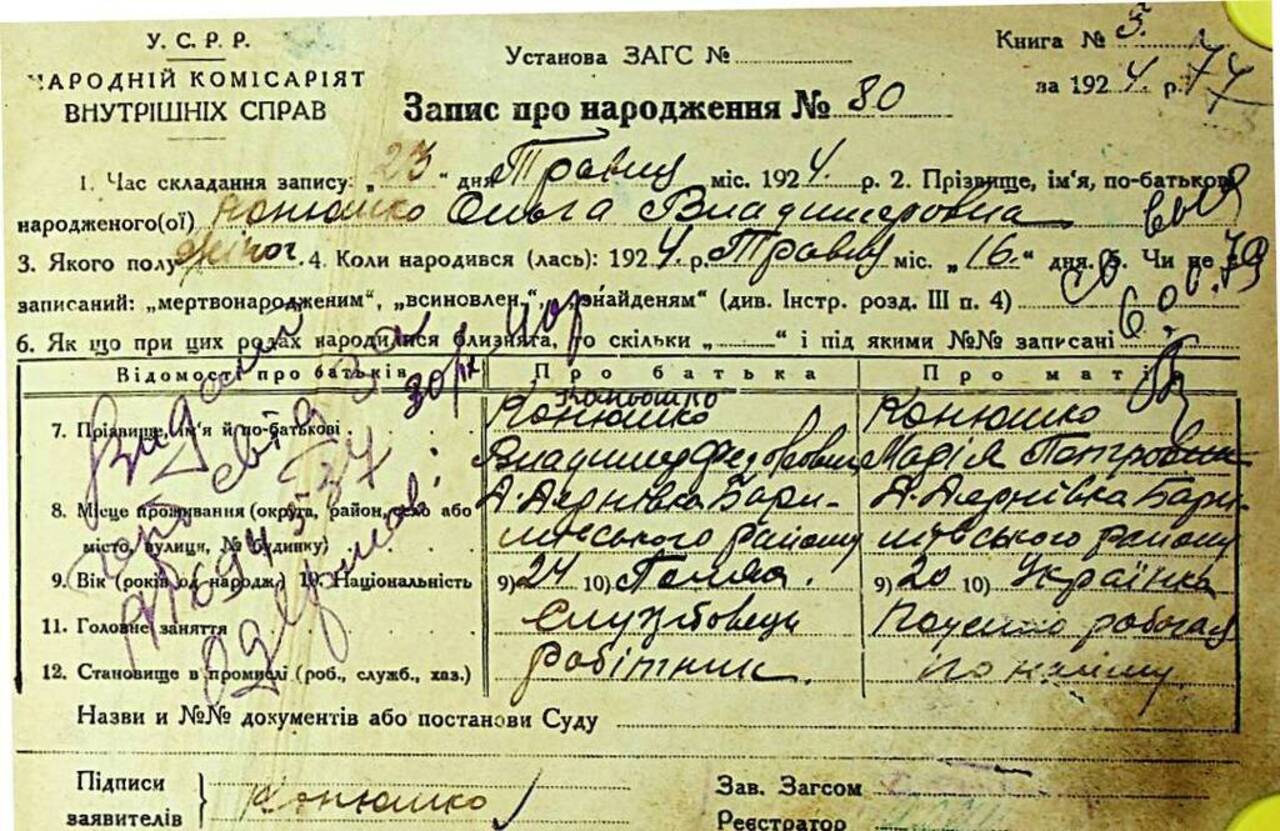 У. С. Р. Р.
НАРОДНІЙ КОМІСАРІЯТ
ВНУТРІШНІХ СПРАВ
Установа ЗАГС №
Книга № 5.
за 1924 р.
Запис про народження № 80
1. Час складання запису: „23“ дня Травня міс. 1924. р. 2. Прізвище, ім'я, по-батькові
народженого(ої) Конюшко Ольга Владимеровна
3. Якого полу жіноч. 4. Коли народився (лась): 1924 р. Травня міс. „16.“ дня. 5. Чи не
записаний: „мертвонародженим“, „всиновлен.“, „знайденям“ (див. Інстр. розд. III п. 4)
6. Як що при цих родах народилися близнята, то скільки „ “ і під якими №№ записані
Відомості про батьків Про батька Про матір
7. Прізвище, ім'я й по-батькові Конюшко Конюшко
Владимер Федорович Марія Петровна
8. Місце проживання (округа, район, село або
місто, вулиця, № будинку) району району
9. Вік (років од народж.) 10. Національність 9) 24 10) Поляк. 9) 20 10) Українка
11. Головне заняття Службовець
12. Становище в промислі (роб., служб., хаз.) робітник. по найму
Видано
Назви и №№ документів або постанови Суду
Підписи
заявителів Конюшко
Зав. Загсом
Реєстратор